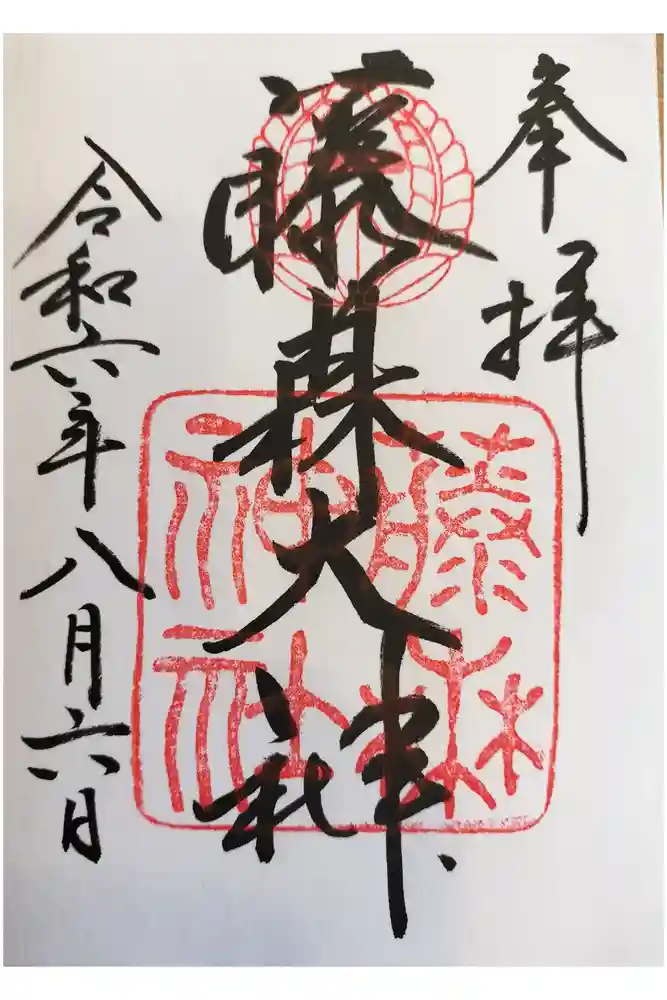 奉拝
藤森大神
令和六年八月六日
藤森
神社